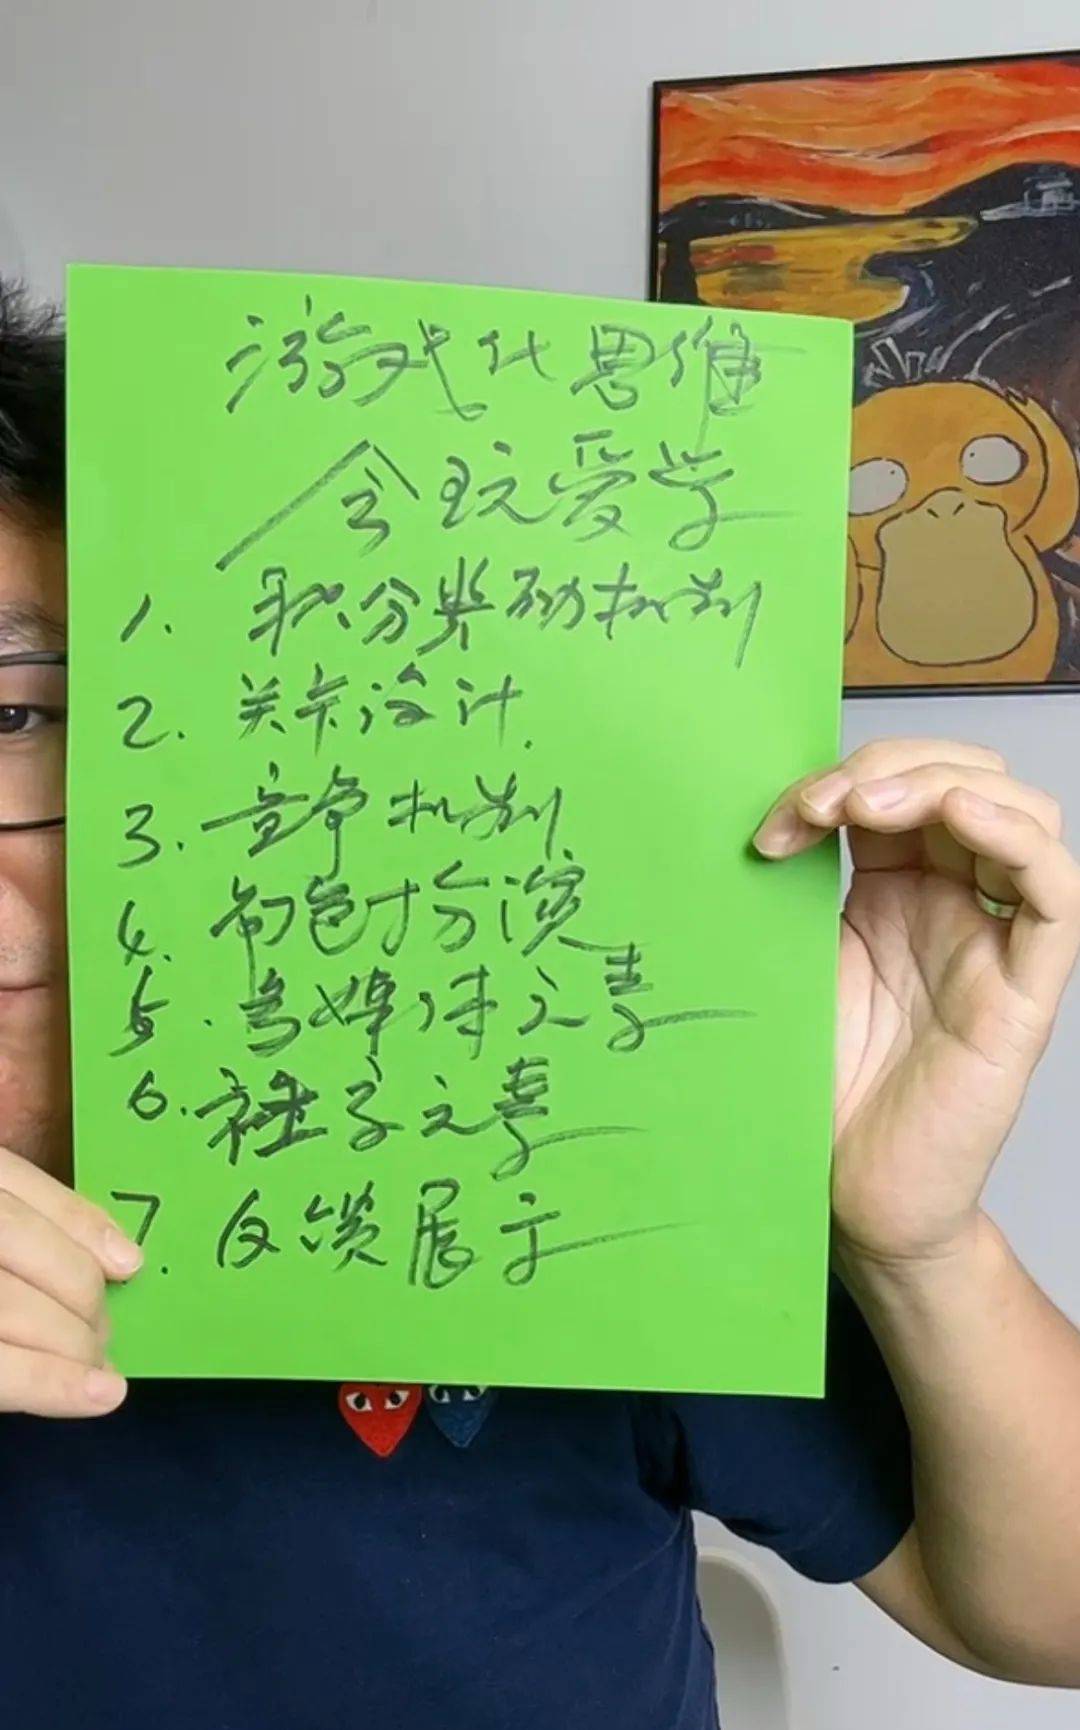 游戏化思维
会玩爱学
1. 积分奖励机制
2. 关卡设计.
3. 竞争机制
4. 角色扮演
5. 多媒体元素
6. 社交元素
7. 反馈展示